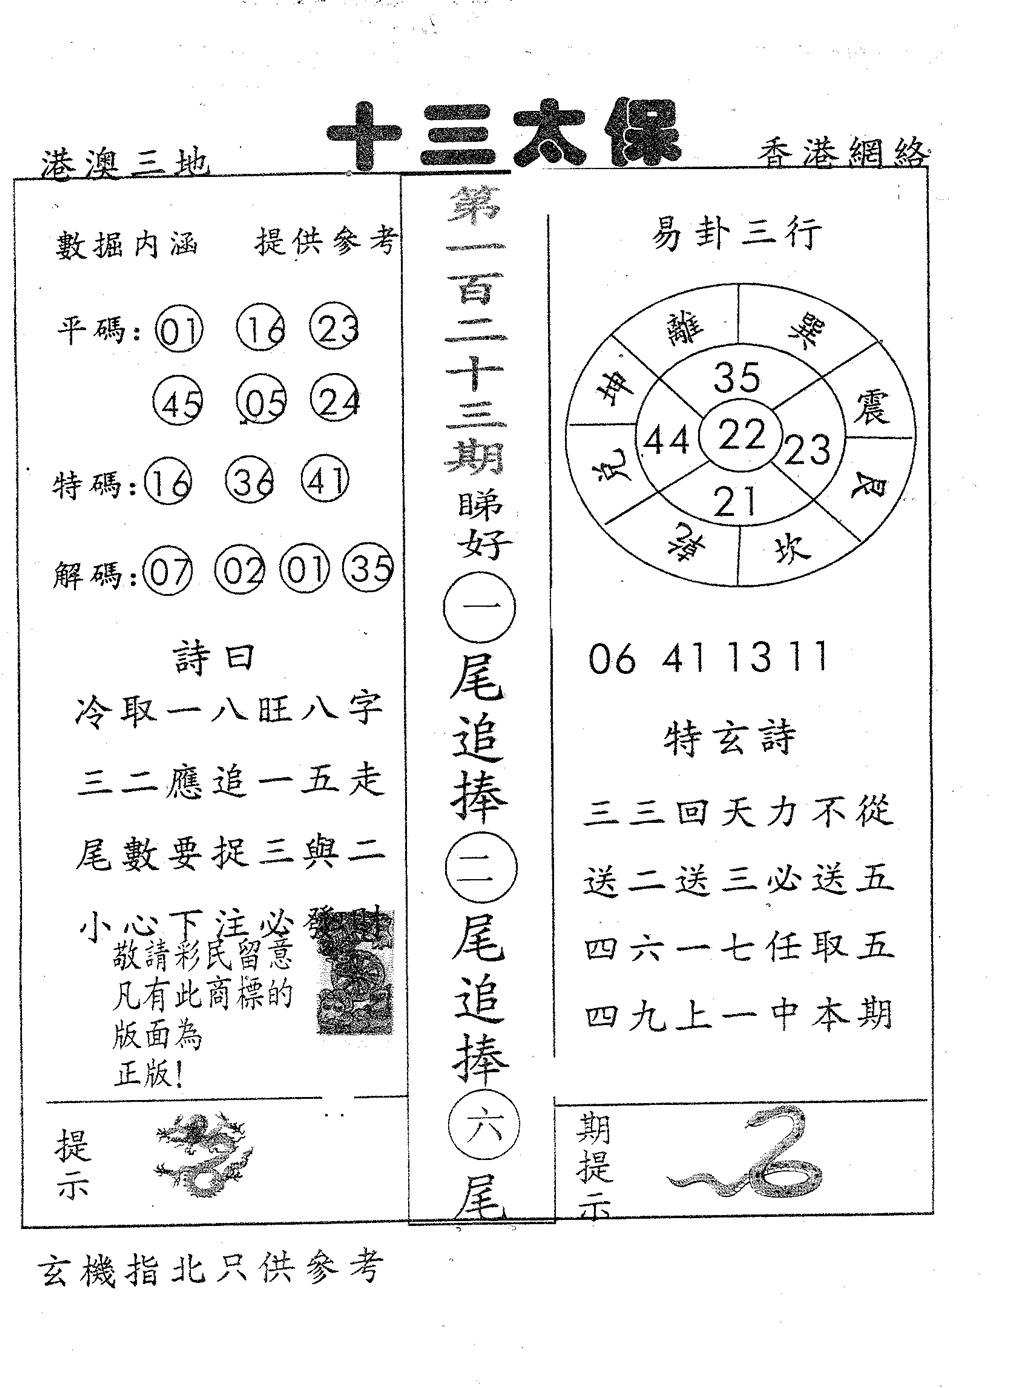 十三太保
港澳三地
香港網絡
數掘内涵 提供參考
平碼: 01 16 23
45 05 24
特碼: 16 36 41
解碼: 07 02 01 35
詩曰
冷取一八旺八字
三二應追一五走
尾數要捉三與二
小心下注必發財
敬請彩民留意
凡有此商標的
版面為
正版!
提示
第一百二十三期
睇好一尾追捧二尾追捧六尾
易卦三行
離 巽
坤 震
兌 艮
乾 坎
35
44 22 23
21
06 41 13 11
特玄詩
三三回天力不從
送二送三必送五
四六一七任取五
四九上一中本期
期提示
玄機指北只供參考